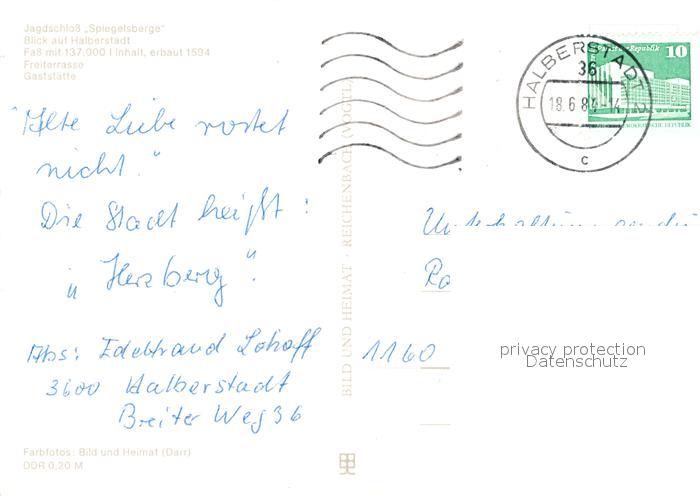 Jagdschloß „Spiegelsberge"
Blick auf Halberstadt
Faß mit 137.000 l Inhalt, erbaut 1594
Freiterrasse
Gaststätte
"Alte Liebe rostet
nicht."
Die Stadt heißt:
„Herzberg".
Abs: Edeltraud Lohoff
3600 Halberstadt
Breiter Weg 36
Farbfotos: Bild und Heimat (Darr)
DDR 0,20 M
BILD UND HEIMAT · REICHENBACH (VOGTL
HALBERSTADT 2
36
18.6.84-14
c
Palast der Republik 10
DEUTSCHE DEMOKRATISCHE REPUBLIK
1160
privacy protection
Datenschutz